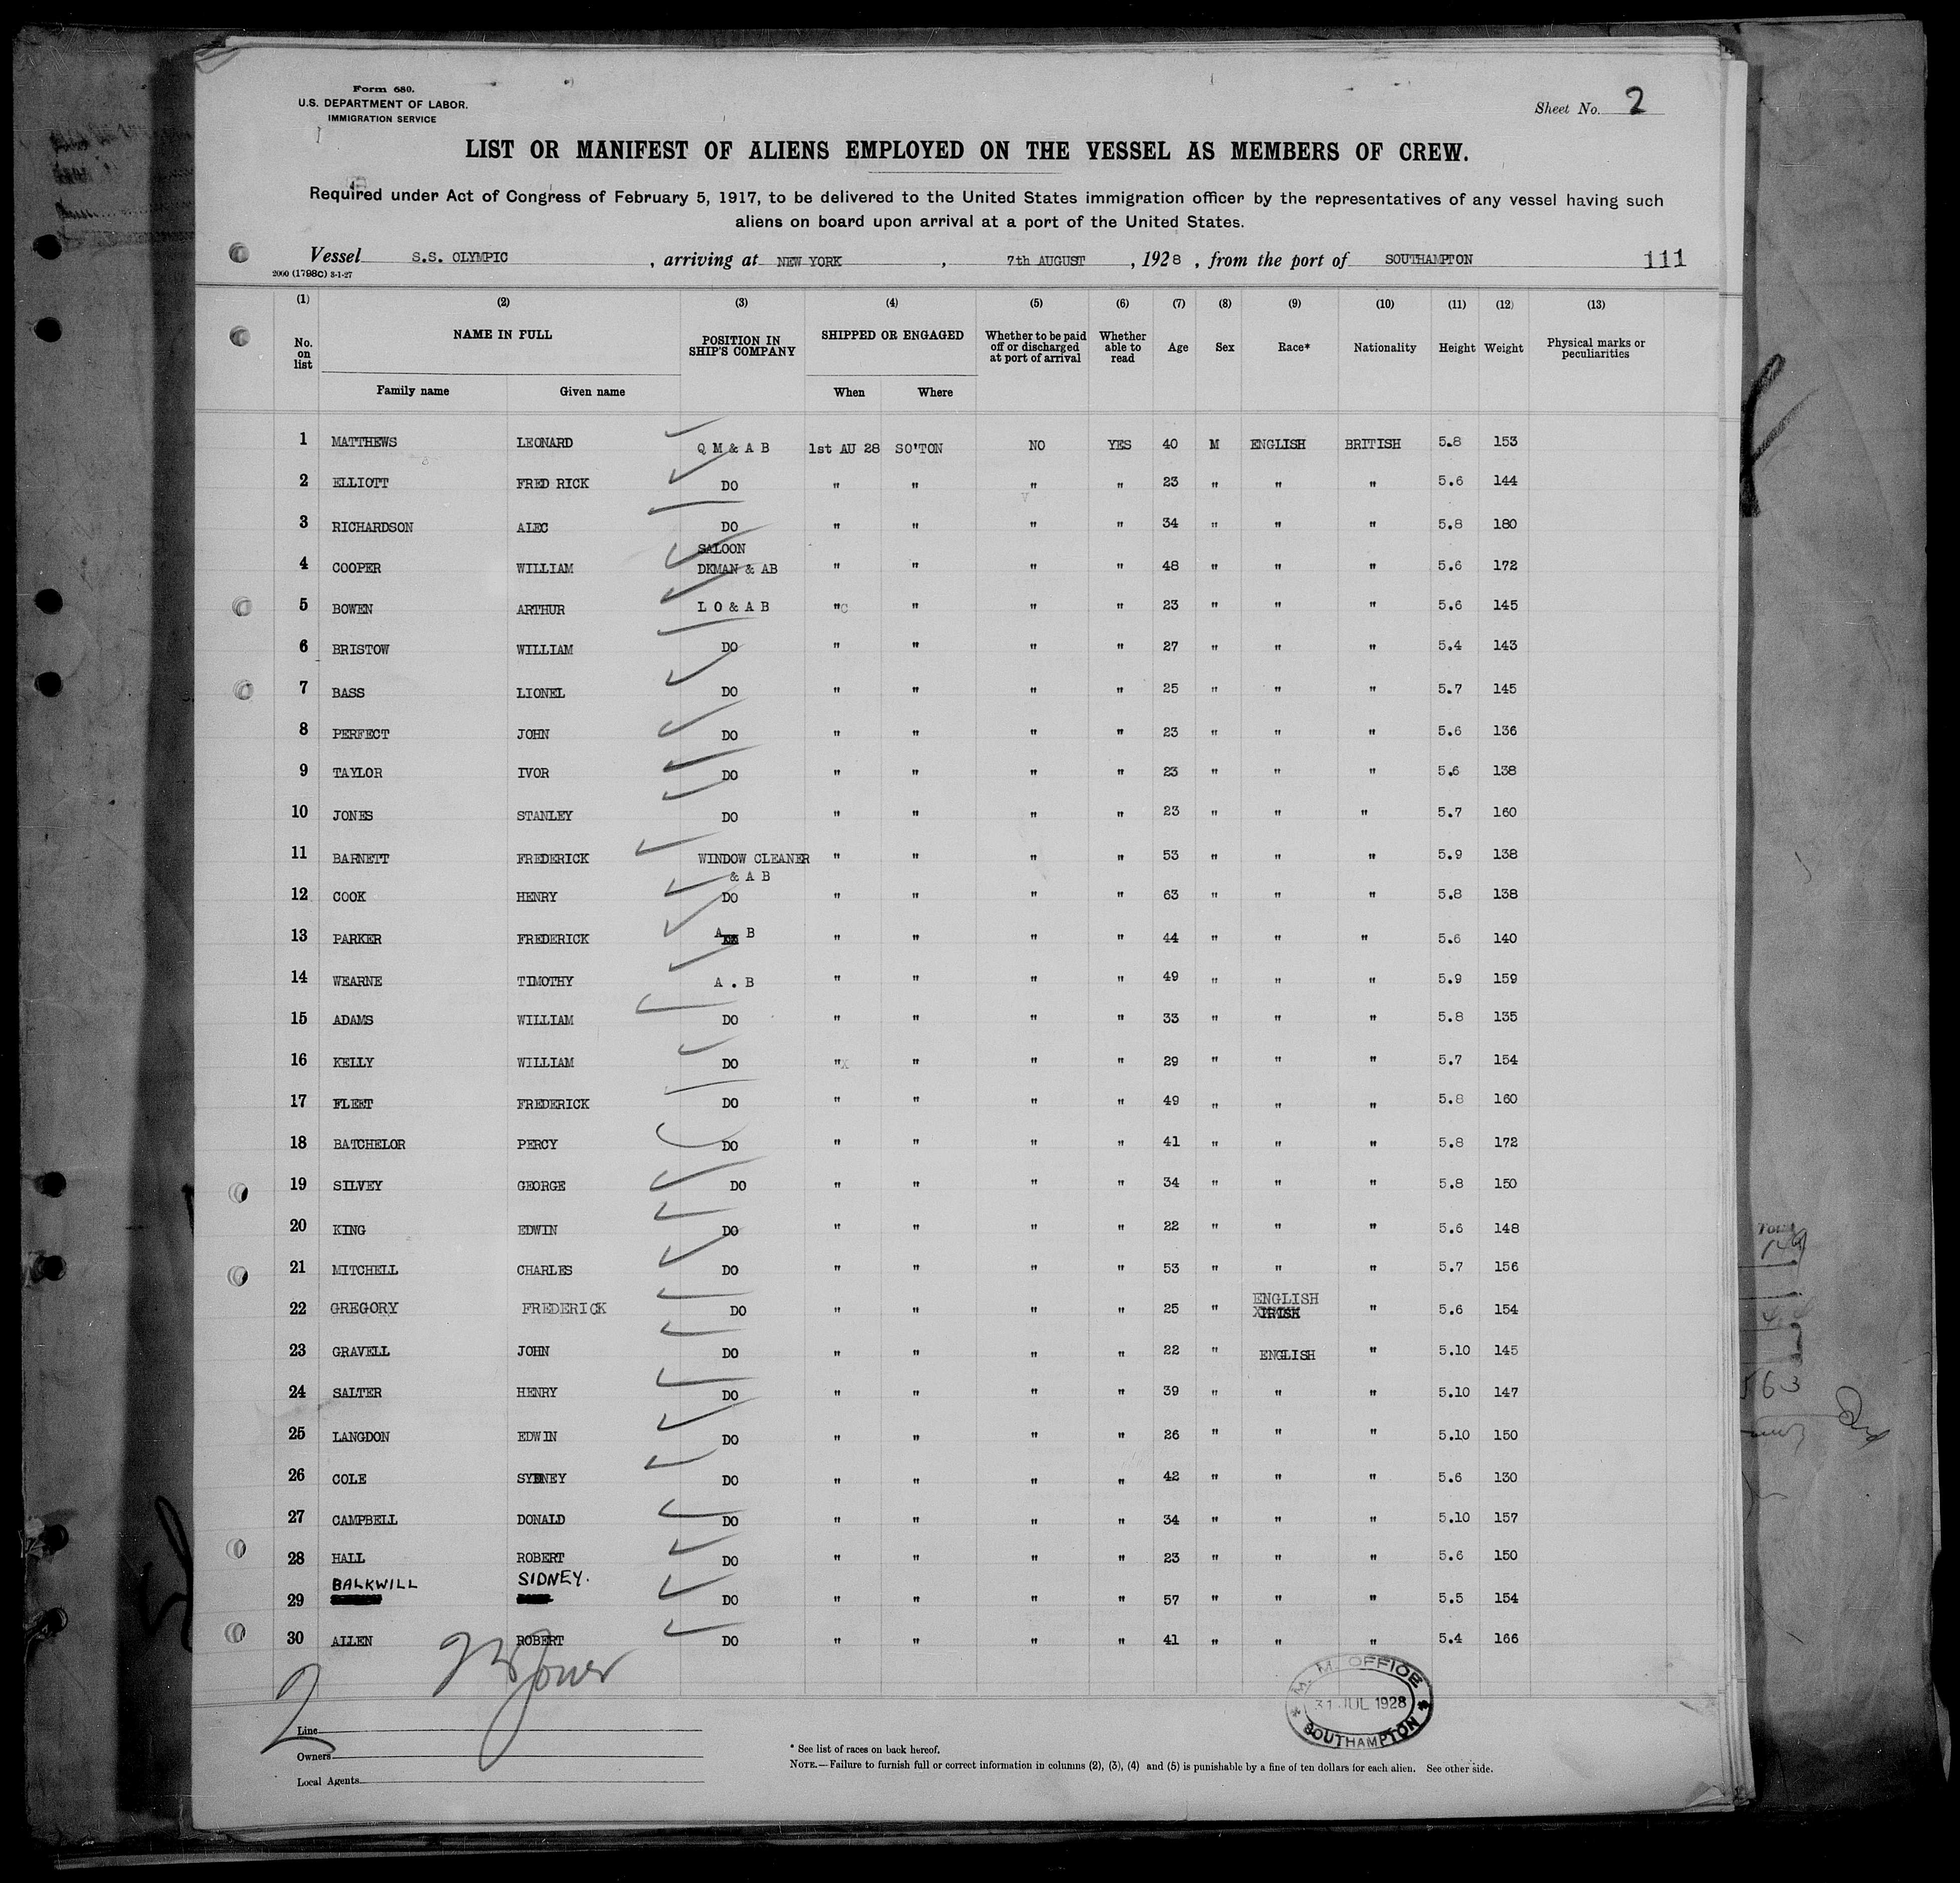 Form 680.
U.S. DEPARTMENT OF LABOR.
IMMIGRATION SERVICE
Sheet No. 2
LIST OR MANIFEST OF ALIENS EMPLOYED ON THE VESSEL AS MEMBERS OF CREW.
Required under Act of Congress of February 5, 1917, to be delivered to the United States immigration officer by the representatives of any vessel having such
aliens on board upon arrival at a port of the United States.
Vessel S.S. OLYMPIC, arriving at NEW YORK, 7th AUGUST, 1928, from the port of SOUTHAMPTON 111
2000 (1798C) 3-1-27
(1) (2) (3) (4) (5) (6) (7) (8) (9) (10) (11) (12) (13)
No. on list NAME IN FULL POSITION IN SHIP'S COMPANY SHIPPED OR ENGAGED Whether to be paid off or discharged at port of arrival Whether able to read Age Sex Race* Nationality Height Weight Physical marks or peculiarities
Family name Given name When Where
1 MATTHEWS LEONARD Q M & A B 1st AU 28 SO'TON NO YES 40 M ENGLISH BRITISH 5.8 153
2 ELLIOTT FRED RICK DO " " " " 23 " " " 5.6 144
3 RICHARDSON ALEC DO " " " " 34 " " " 5.8 180
4 COOPER WILLIAM SALOON DKMAN & AB " " " " 48 " " " 5.6 172
5 BOWEN ARTHUR L O & A B "C " " " 23 " " " 5.6 145
6 BRISTOW WILLIAM DO " " " " 27 " " " 5.4 143
7 BASS LIONEL DO " " " " 25 " " " 5.7 145
8 PERFECT JOHN DO " " " " 23 " " " 5.6 136
9 TAYLOR IVOR DO " " " " 23 " " " 5.6 138
10 JONES STANLEY DO " " " " 23 " " " 5.7 160
11 BARNETT FREDERICK WINDOW CLEANER & A B " " " " 53 " " " 5.9 138
12 COOK HENRY DO " " " " 63 " " " 5.8 138
13 PARKER FREDERICK A B " " " " 44 " " " 5.6 140
14 WEARNE TIMOTHY A . B " " " " 49 " " " 5.9 159
15 ADAMS WILLIAM DO " " " " 33 " " " 5.8 135
16 KELLY WILLIAM DO "X " " " 29 " " " 5.7 154
17 FLEET FREDERICK DO " " " " 49 " " " 5.8 160
18 BATCHELOR PERCY DO " " " " 41 " " " 5.8 172
19 SILVEY GEORGE DO " " " " 34 " " " 5.8 150
20 KING EDWIN DO " " " " 22 " " " 5.6 148
21 MITCHELL CHARLES DO " " " " 53 " " " 5.7 156
22 GREGORY FREDERICK DO " " " " 25 " ENGLISH " 5.6 154
23 GRAVELL JOHN DO " " " " 22 " ENGLISH " 5.10 145
24 SALTER HENRY DO " " " " 39 " " " 5.10 147
25 LANGDON EDWIN DO " " " " 26 " " " 5.10 150
26 COLE SYDNEY DO " " " " 42 " " " 5.6 130
27 CAMPBELL DONALD DO " " " " 34 " " " 5.10 157
28 HALL ROBERT DO " " " " 23 " " " 5.6 150
29 BALKWILL SIDNEY. DO " " " " 57 " " " 5.5 154
30 ALLEN ROBERT DO " " " " 41 " " " 5.4 166
2 Jones
M. M. OFFICE
31 JUL 1928
SOUTHAMPTON
Line
Owners
Local Agents
* See list of races on back hereof.
NOTE.—Failure to furnish full or correct information in columns (2), (3), (4) and (5) is punishable by a fine of ten dollars for each alien. See other side.